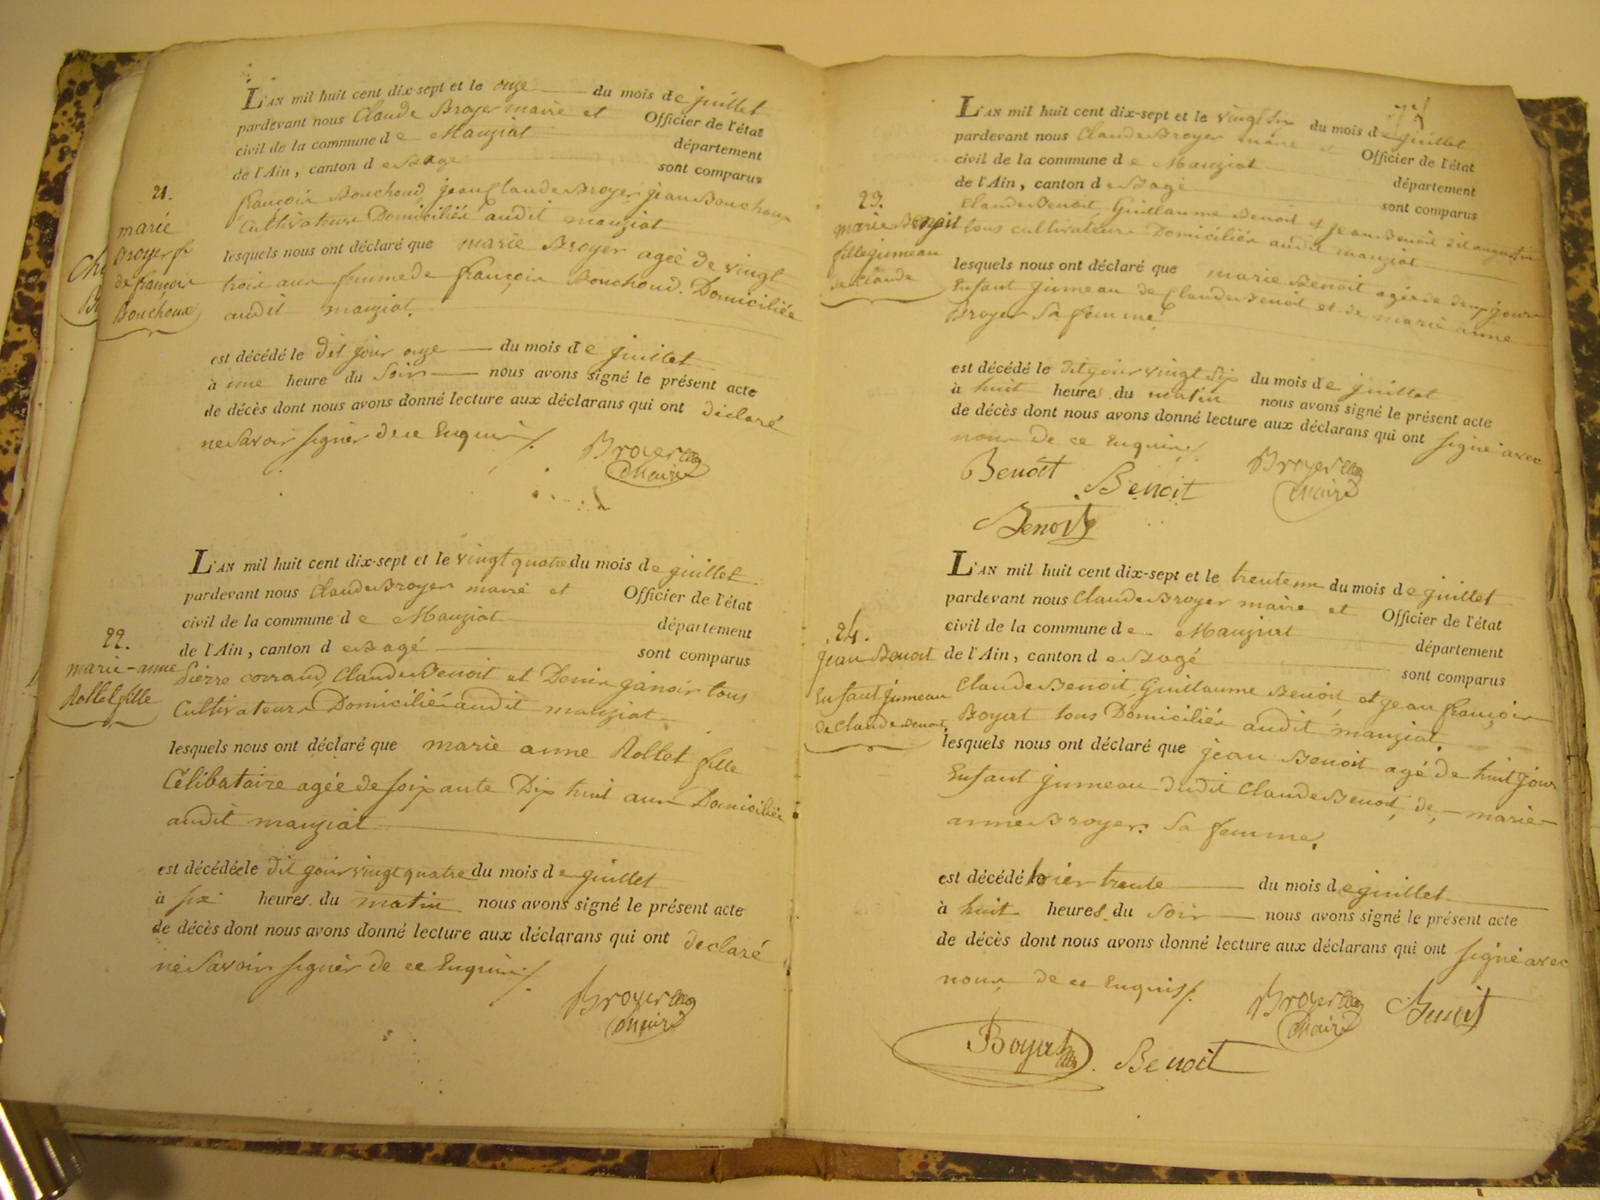 L'AN mil huit cent dix-sept et le onze du mois de juillet
pardevant nous Claude Broyer maire et Officier de l'état
civil de la commune de Manziat département
de l'Ain, canton de Bagé sont comparus
21.
françois Bouchoud, jean Claude Broyer, jean Bouchoux
Cultivateurs Domiciliés audit manziat
marie
Broyer fe
de françois
Bouchoux
lesquels nous ont déclaré que marie Broyer agée de vingt
trois ans femme de françois Bouchoud. Domiciliée
audit manziat
est décédé le dit jour onze du mois de juillet
à une heure du Soir nous avons signé le présent acte
de décès dont nous avons donné lecture aux déclarans qui ont déclaré
ne Savoir signer de ce Enquis
Broyer
Maire
L'AN mil huit cent dix-sept et le vingt quatre du mois de juillet
pardevant nous Claude Broyer maire et Officier de l'état
civil de la commune de Manziat département
de l'Ain, canton de Bagé sont comparus
22.
marie-anne
Rollet fille
Pierre corrand, Claude Benoit et Denis janoir tous
Cultivateurs Domiciliés audit manziat
lesquels nous ont déclaré que marie anne Rollet fille
Célibataire agée de soixante Dix huit ans Domiciliée
audit manziat
est décédée le dit jour vingt quatre du mois de juillet
à six heures du matin nous avons signé le présent acte
de décès dont nous avons donné lecture aux déclarans qui ont declaré
ne Savoir signer de ce Enquis
Broyer
Maire
L'AN mil huit cent dix-sept et le vingt six du mois de juillet
pardevant nous Claude Broyer maire et Officier de l'état
civil de la commune de Manziat département
de l'Ain, canton de Bagé sont comparus
23.
marie Benoit
fille jumeau
de Claude
Claude Benoit, Guillaume Benoit et jean Benoit dit augustin
tous cultivateurs Domiciliés audit manziat
lesquels nous ont déclaré que marie Benoit agée de deux jours
Enfant jumeau de Claude Benoit et de marie anne
Broyer Sa femme
est décédé le dit jour vingt six du mois de juillet
à huit heures du matin nous avons signé le présent acte
de décès dont nous avons donné lecture aux déclarans qui ont signé avec
nous de ce Enquis
Benoit Benoit Broyer
Maire
Benoit
L'AN mil huit cent dix-sept et le trente un du mois de juillet
pardevant nous Claude Broyer maire et Officier de l'état
civil de la commune de Manziat département
de l'Ain, canton de Bagé sont comparus
24.
Jean Benoit
Enfant jumeau
de Claude Benoit
Claude Benoit, Guillaume Benoit, et jean françois
Boyat tous Domiciliés audit manziat
lesquels nous ont déclaré que jean Benoit agé de huit jours
Enfant jumeau dudit Claude Benoit, de marie
anne Broyer. Sa femme
est décédé hier trente du mois de juillet
à huit heures du soir nous avons signé le présent acte
de décès dont nous avons donné lecture aux déclarans qui ont signé avec
nous de ce Enquis
Broyer Benoit
Maire
Boyat Benoit